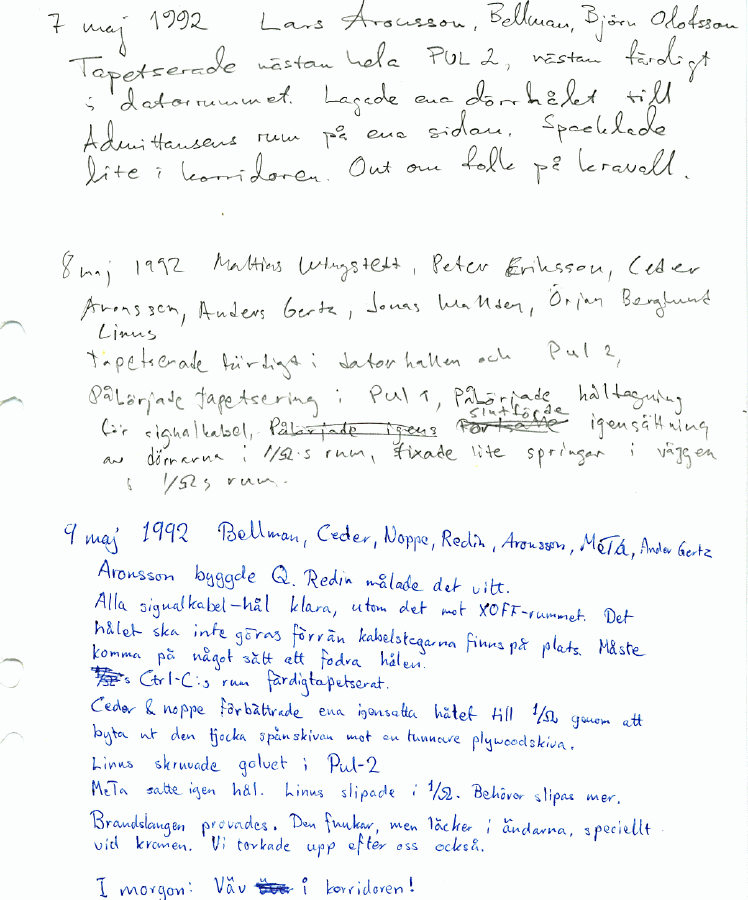 7 maj 1992 Lars Aronsson, Bellman, Björn Olofsson
Tapetserade nästan hela PUL 2, nästan färdigt
i datorrummet. Lagade ena dörrhålet till
Admittansens rum på ena sidan. Spacklade
lite i korridoren. Ont om folk på kravall.
8 maj 1992 Mattias Wingstedt, Peter Eriksson, Ceder
Aronsson, Anders Gertz, Jonas Mattsen, Örjan Berglund
Linus
Tapetserade färdigt i datorhallen och Pul 2,
Påbörjade tapetsering i Pul 1, Påbörjade håltagning
slutförde
för signalkabel, Påbörjade igens Fortsatte igensättning
av dörrarna i 1/Ω:s rum, fixade lite springor i väggen
i 1/Ω:s rum.
9 maj 1992 Bellman, Ceder, Noppe, Redin, Aronsson, MeTA, Ander Gertz
Aronsson byggde Q. Redin målade det vitt.
Alla signalkabel-hål klara, utom det mot XOFF-rummet. Det
hålet ska inte göras förrän kabelstegarna finns på plats. Måste
komma på något sätt att fodra hålen.
1/Ω:s Ctrl-C:s rum färdigtapetserat.
Ceder & noppe förbättrade ena igensatta hålet till 1/Ω genom att
byta ut den tjocka spånskivan mot en tunnare plywoodskiva.
Linus skruvade golvet i Pul-2
MeTa satte igen hål. Linus slipade i 1/Ω. Behöver slipas mer.
Brandslangen provades. Den funkar, men läcker i ändarna, speciellt
vid kranen. Vi torkade upp efter oss också.
I morgon: Väv i korridoren!